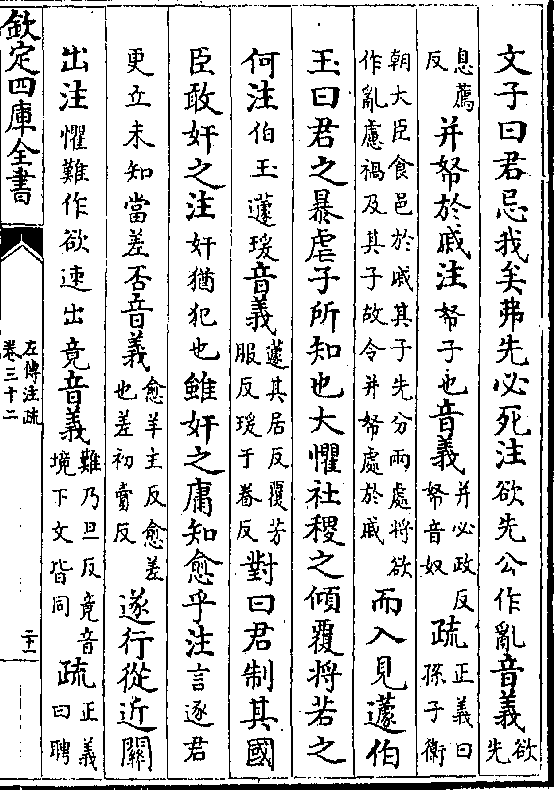 文子曰君忌我矣弗先必死注欲先公作亂音義欲先
息薦反并帑於戚注帑子也音義并必政反帑音奴疏正義曰孫子衛
朝大臣食邑於戚其子先分兩處將欲作亂慮禍及其子故令并帑處於戚而入見蘧伯
玉曰君之暴虐子所知也大懼社稷之傾覆將若之
何注伯玉蘧瑗音義蘧其居反覆芳服反瑗于眷反對曰君制其國
臣敢奸之注奸猶犯也雖奸之庸知愈乎注言逐君
更立未知當差否音義愈羊主反愈差也差初賣反遂行從近關
出注懼難作欲速出竟音義難乃旦反竟音境下文皆同疏正義曰聘
欽定四庫全書
左傳注疏
卷三十二